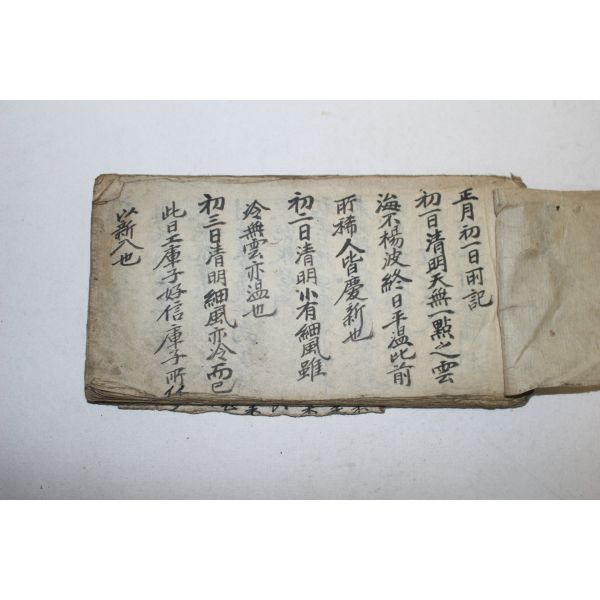 正月初一日所記
初一日清明天無一點之雲
海不楊波終日平温此前
所稀人皆慶新也
初二日清明小有細風雖
冷無雲亦温也
初三日清明細風亦冷而已
此日工庫子好信庫子所任
以薪入也